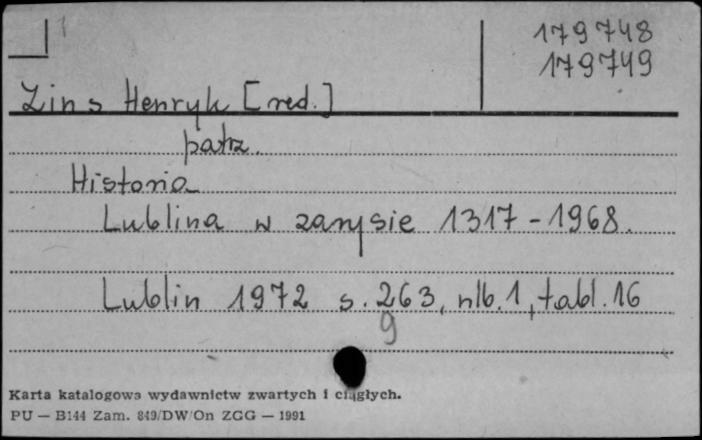 1
179748
179749
Zins Henryk [red.]
patrz.
Historia
Lublina w zarysie 1317-1968.
Lublin 1972 s. 263, nlb. 1, tabl. 16
9
Karta katalogowa wydawnictw zwartych i ciągłych.
PU — B144 Zam. 849/DW/On ZGG — 1991